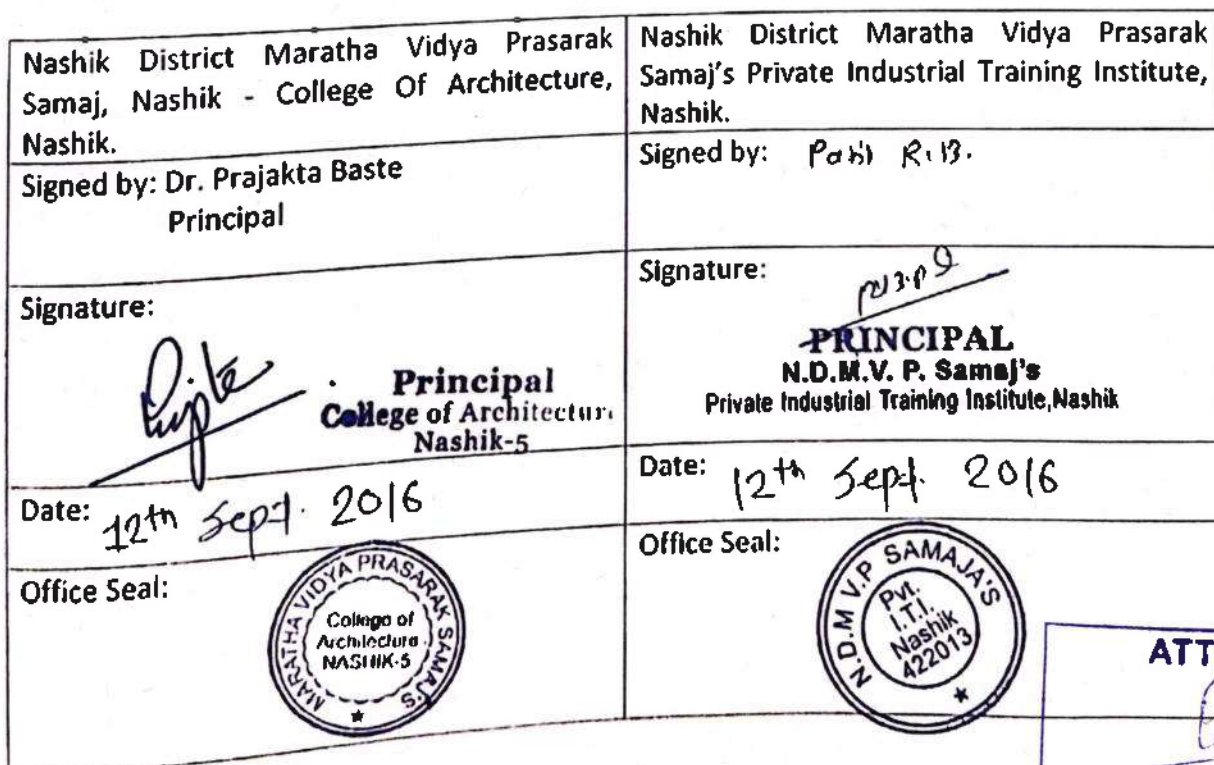 Nashik District Maratha Vidya Prasarak
Samaj, Nashik - College Of Architecture,
Nashik.
Signed by: Dr. Prajakta Baste
Principal
Signature:
Principal
College of Architectur
Nashik-5
Date: 12th Sept. 2016
Office Seal:
MARATHA VIDYA PRASARAK SAMAJ'S
College of
Architecture
NASHIK-5
Nashik District Maratha Vidya Prasarak
Samaj's Private Industrial Training Institute,
Nashik.
Signed by: Patil R.B.
Signature:
PRINCIPAL
N.D.M.V. P. Samaj's
Private Industrial Training Institute,Nashik
Date: 12th Sept. 2016
Office Seal:
N.D.M V.P SAMAJA'S
Pvt.
I.T.I.
Nashik
422013
ATT